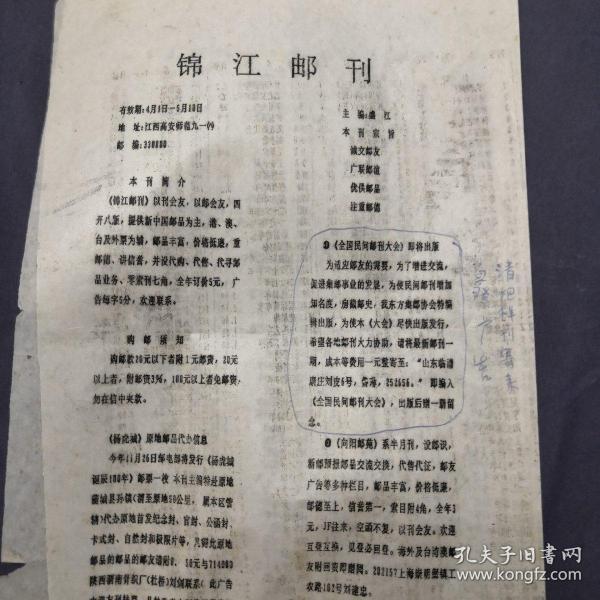 锦江邮刊
有效期:4月1日—5月10日
地 址:江西高安师范九一(9)
邮 编:330800
主 编:盛江
本刊宗旨
诚交邮友
广联邮谊
优供邮品
注重邮德
本刊简介
《锦江邮刊》以刊会友,以邮会友,四
开八版,提供新中国邮品为主,港、澳、
台及外票为辅,邮品丰富,价格低廉,重
邮德、讲信誉,并设代购、代售、代寻邮
品业务、零索刊七角,全年订价5元,广
告每字5分,欢迎联系。
购邮须知
购邮款20元以下者附1元邮资,20元
以上者,附邮资3%,100元以上者免邮资,
勿在信中夹款。
《杨虎城》原地邮品代办信息
今年11月26日邮电部将发行《杨虎城
诞辰100年》邮票一枚 本刊主编特赴原地
蒲城县孙镇(渭至原地50公里,
代办原地首发纪念封、盲封、公函封、
卡式封、自然封和极限片等,
邮品的邮友请附0.50元与714000
陕西渭南
①《全国民间邮刊大会》即将出版
为适应邮友的需要,为了增进交流,
促进集邮事业的发展,为使民间邮刊增加
知名度,房截邮史,我东方集邮协会特编
辑出版,为使本《大会》尽快出版发行,
希望各地邮刊大力协助,请将最新邮刊一
期,成本等费用一元整寄至:“山东临清
康庄刘皮6号,岱海,252656。”即编入
《全国民间邮刊大会》,出版后赠一册留
念。
②《向阳邮苑》系半月刊,设邮识,
新邮预报邮品交流交换,代售代征,邮友
广告等多种栏目,邮品丰富,价格低廉,
邮德至上,信誉第一,索目附4角,全年3
元,JF往来,空函不复,以刊会友。欢迎
互登互换,见登必回登。海外及台港澳邮
友附回资即赠阅。202157上海崇明堡镇工
农路162号刘建忠。
孔夫子旧书网
kongfz.com